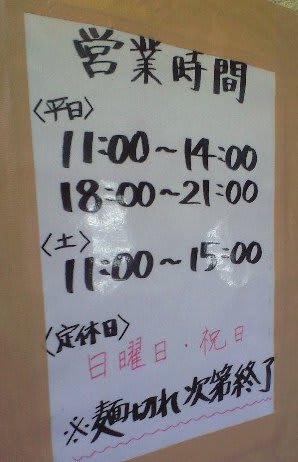 営業時間
〈平日〉
11:00〜14:00
18:00〜21:00
〈土〉
11:00〜15:00
〈定休日〉
日曜日・祝日
※麺切れ次第終了